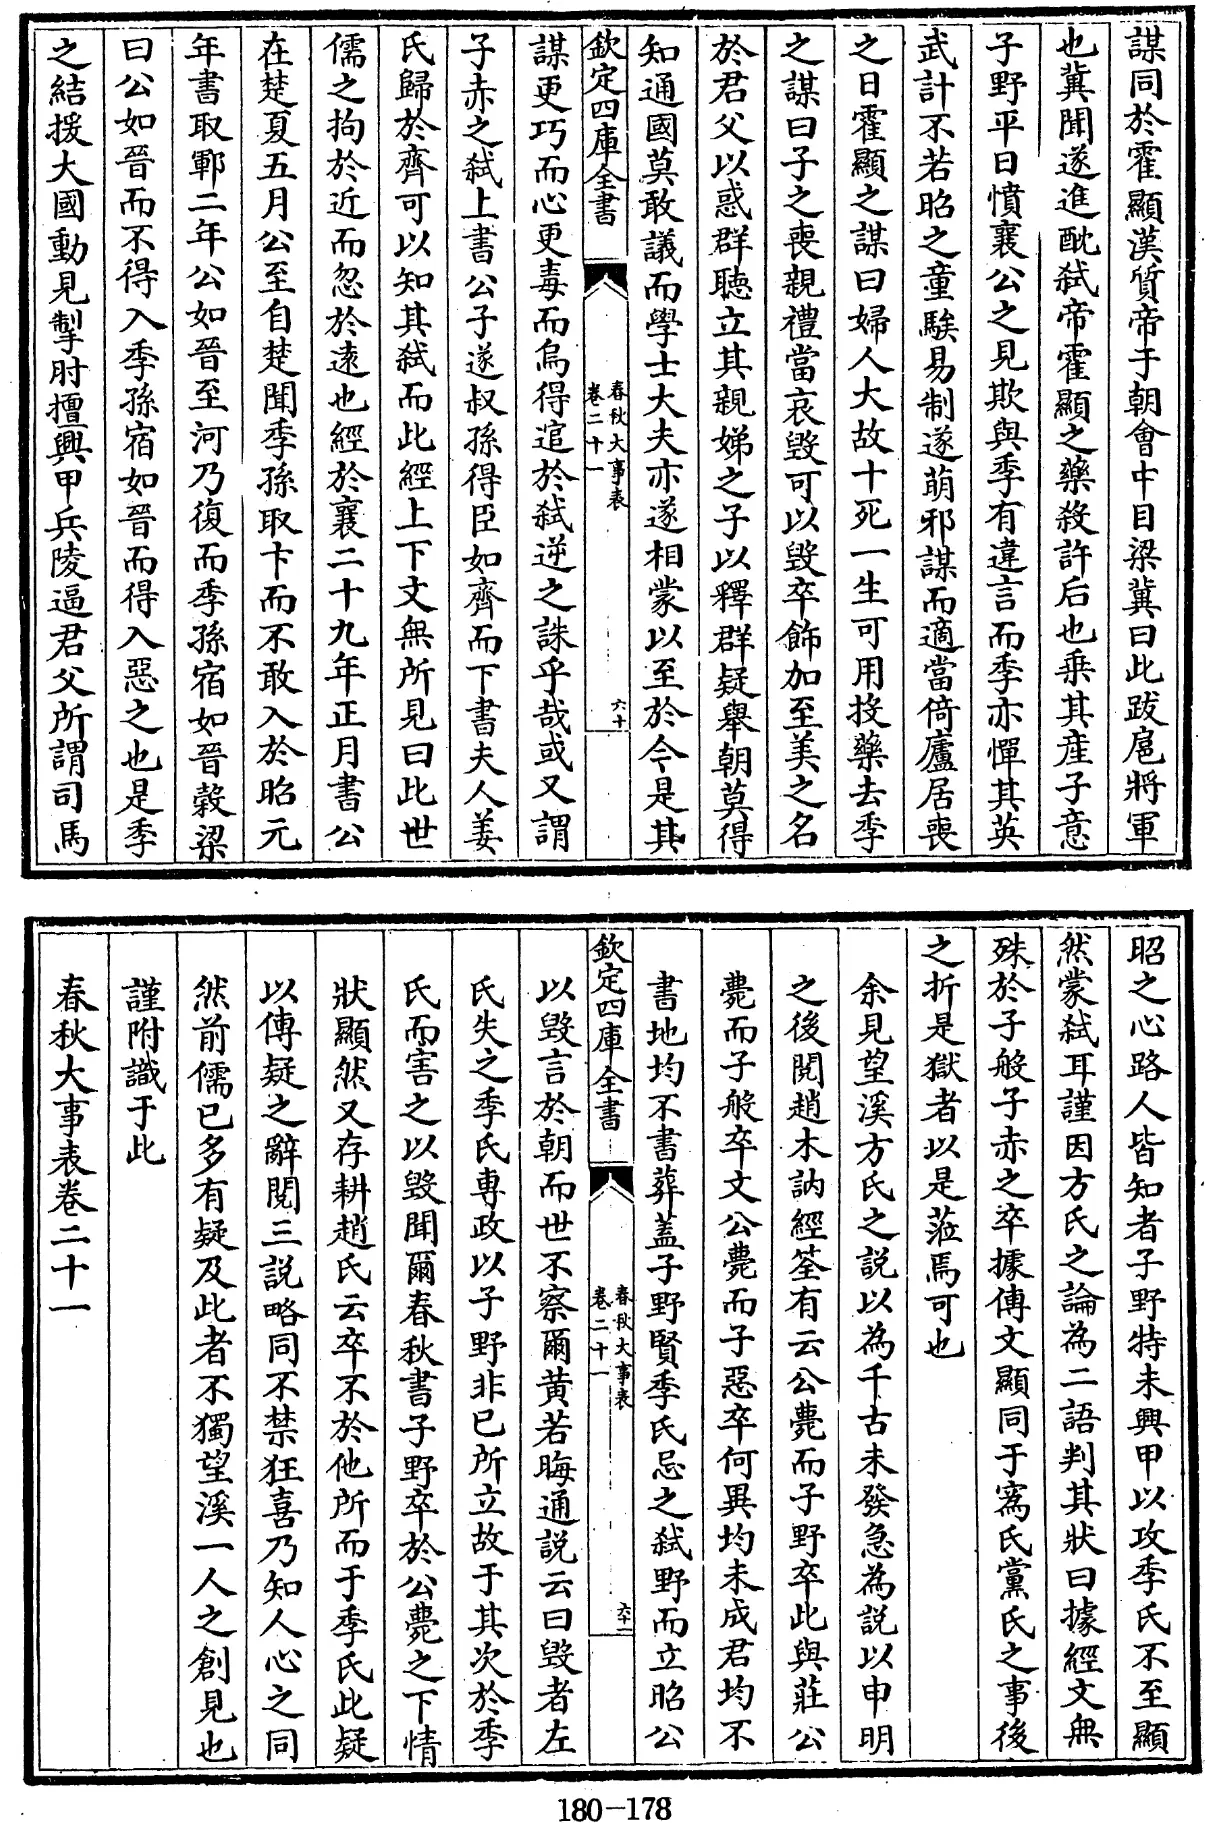 謀同於霍顯漢質帝于朝會中目梁冀曰此跋扈將軍
也冀聞遂進酖弑帝霍顯之藥殺許后也乗其産子意
子野平日憤襄公之見欺與季有違言而季亦憚其英
武計不若昭之童騃易制遂萌邪謀而適當倚廬居喪
之日霍顯之謀曰婦人大故十死一生可用投藥去季
之謀曰子之喪親禮當哀毀可以毀卒飾加至美之名
於君父以惑群聽立其親娣之子以釋群疑舉朝莫得
知通國莫敢議而學士大夫亦遂相蒙以至於今是其
欽定四庫全書
春秋大事表
卷二十一
六十
謀更巧而心更毒而烏得逭於弑逆之誅乎哉或又謂
子赤之弑上書公子遂叔孫得臣如齊而下書夫人姜
氏歸於齊可以知其弑而此經上下文無所見曰此世
儒之拘於近而忽於遠也經於襄二十九年正月書公
在楚夏五月公至自楚聞季孫取卞而不敢入於昭元
年書取鄆二年公如晉至河乃復而季孫宿如晉穀梁
曰公如晉而不得入季孫宿如晉而得入惡之也是季
之結援大國動見掣肘擅興甲兵陵逼君父所謂司馬
昭之心路人皆知者子野特未興甲以攻季氏不至顯
然蒙弑耳謹因方氏之論為二語判其狀曰據經文無
殊於子般子赤之卒據傳文顯同于寪氏黨氏之事後
之折是獄者以是蒞焉可也
余見望溪方氏之説以為千古未發急為説以申明
之後閲趙木訥經筌有云公薨而子野卒此與莊公
薨而子般卒文公薨而子惡卒何異均未成君均不
書地均不書葬蓋子野賢季氏忌之弑野而立昭公
欽定四庫全書
春秋大事表
卷二十一
六十一
以毀言於朝而世不察爾黄若晦通説云曰毀者左
氏失之季氏專政以子野非已所立故于其次於季
氏而害之以毀聞爾春秋書子野卒於公薨之下情
狀顯然又存耕趙氏云卒不於他所而于季氏此疑
以傳疑之辭閲三説略同不禁狂喜乃知人心之同
然前儒已多有疑及此者不獨望溪一人之創見也
謹附識于此
春秋大事表卷二十一
180-178